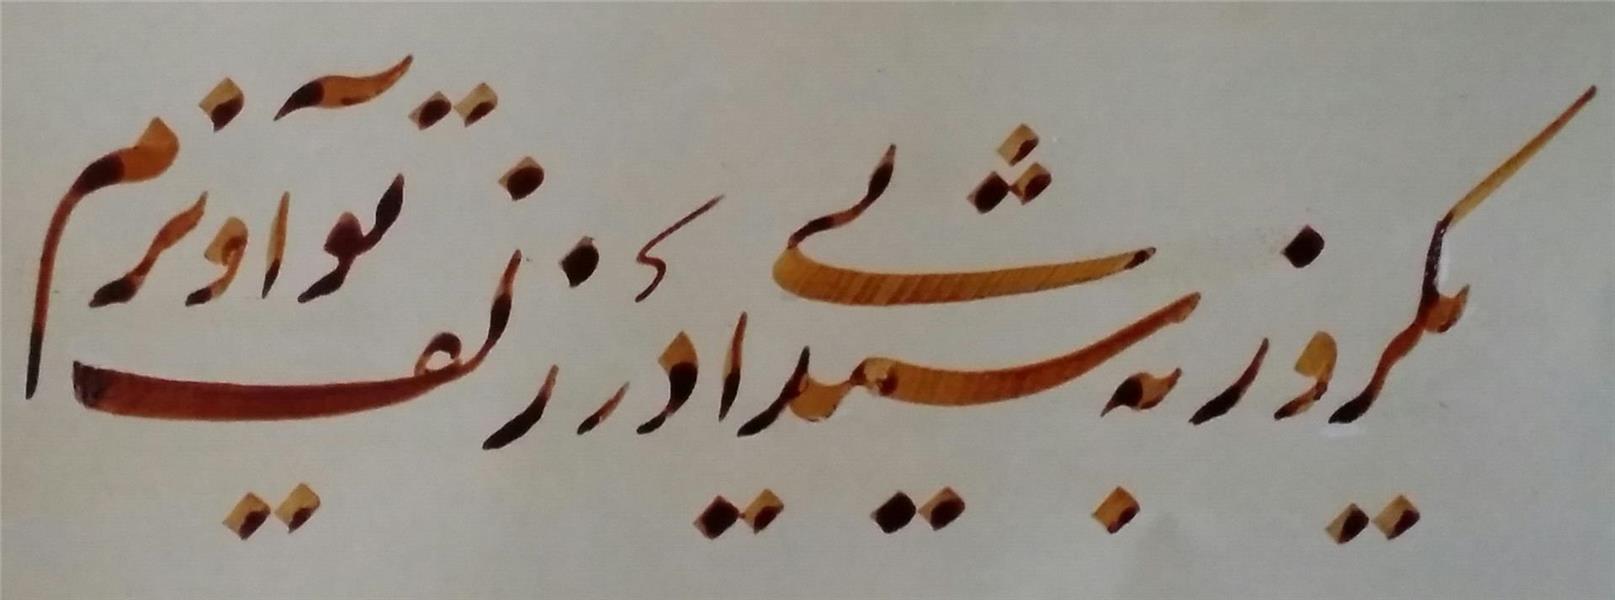 یکروز به شیدایی در زلف تو آویزم